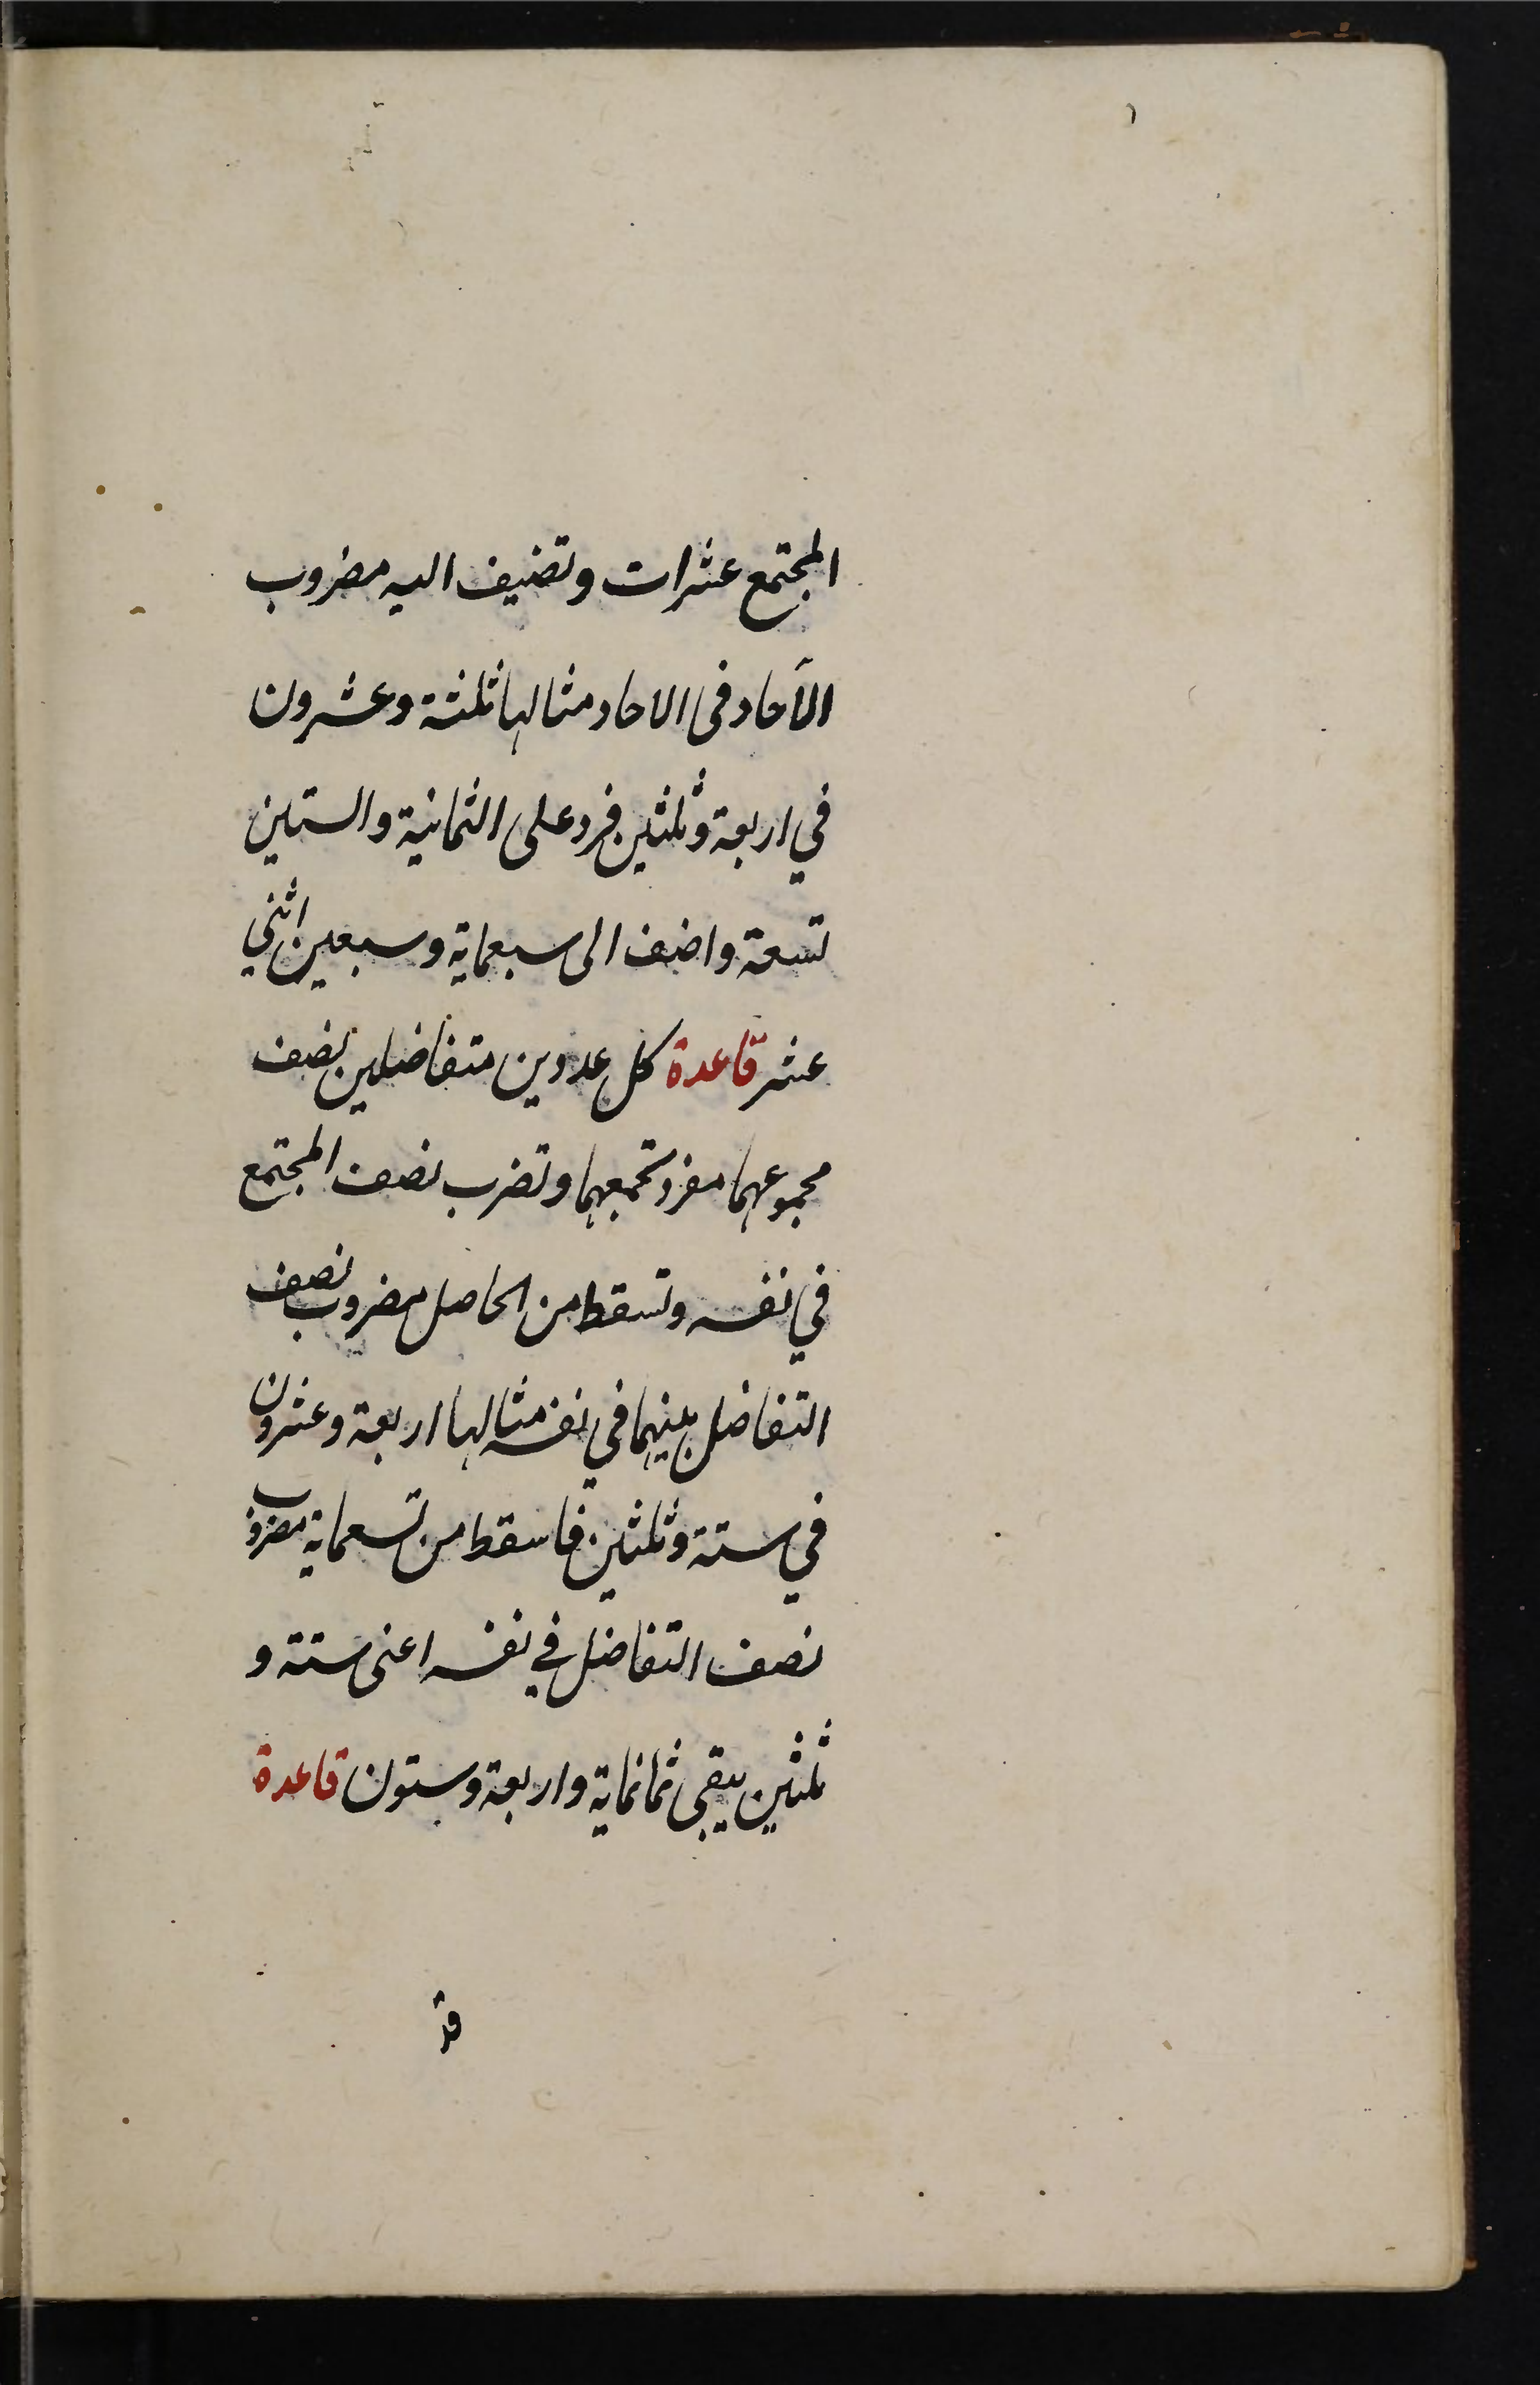 المجتمع عشرات وتضيف اليه مضروب
الآحاد فى الاحاد مثالها ثلثة وعشرون
في اربعة وثلثين فزد على الثمانية والستين
تسعة واضف الى سبعماية وسبعين اثني
عشر قاعدة كل عددين متفاضلين نصف
مجموعهما مفرد تجمعهما وتضرب نصف المجتمع
في نفسه وتسقط من الحاصل مضروب نصف
التفاضل بينهما في نفسه مثالها اربعة وعشرون
في ستة وثلثين فاسقط من تسعماية مضروب
نصف التفاضل في نفسه اعنى ستة و
ثلثين يبقى ثمانماية واربعة وستون قاعدة
قد